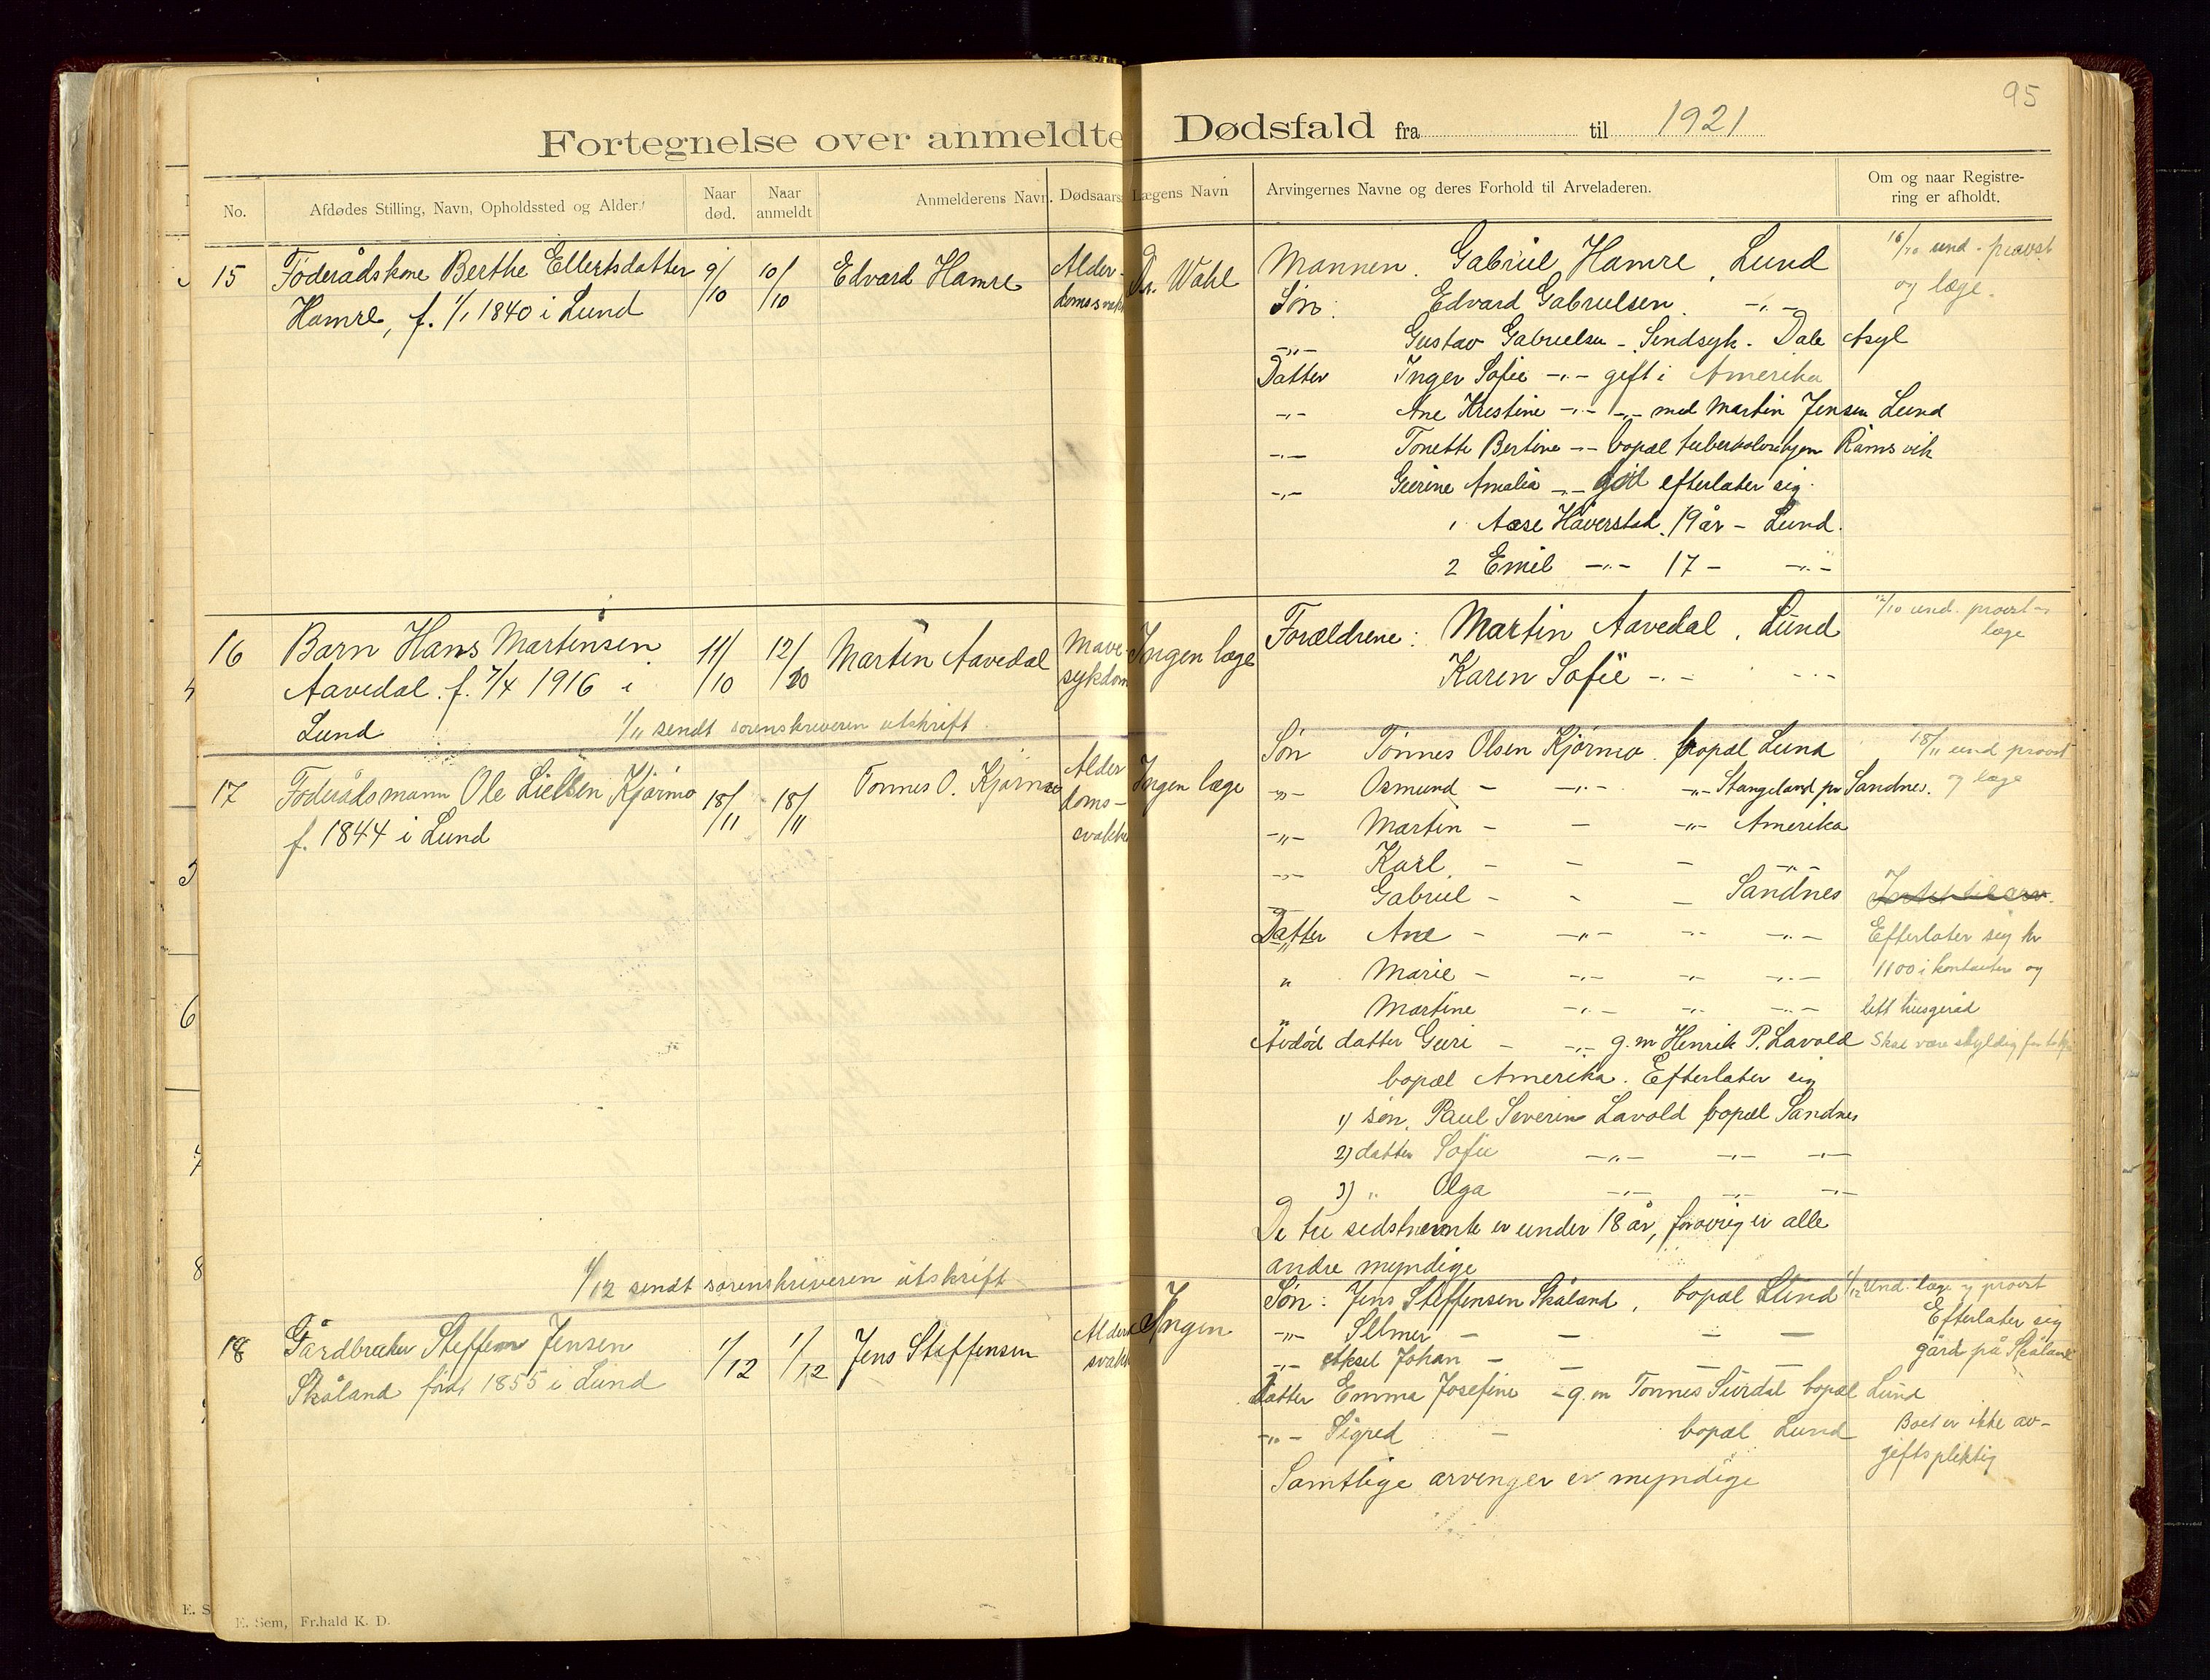 95
Fortegnelse over anmeldte Dødsfald fra til 1921
No.
Afdødes Stilling, Navn, Opholdssted og Alder.
Naar død.
Naar anmeldt
Anmelderens Navn.
Dødsaars
Lægens Navn
Arvingernes Navne og deres Forhold til Arveladeren.
Om og naar Registre-
ring er afholdt.
15 Föderådskone Berthe Ellertsdatter 9/10 10/10 Edvard Hamre Alder- Dr. Wahl
Hamre, f. 1/1 1840 i Lund
Mannen. Gabriel Hamre, Lund
Søn: Edvard Gabrielsen -"-
-"- Gustav Gabrielsen - Sindsyk - Dale Asyl
Datter Inger Sofie -"- gift i Amerika
-"- Ane Kristine -"- -"- med Martin Jensen Lund
-"- Tonette Bertine -"- bopæl Ramsvik
-"- Gurine Amalia -"- død efterlater sig
1 Aase Håverstad. 19 år - Lund.
2 Emil -"- 17 - -"-
16/10 und. provst
og læge.
16 Barn Hans Martinsen 11/10 12/10 Martin Aavedal Mave- Ingen læge
Aavedal. f. 7/4 1916 i sykdom
Lund 1/11 sendt sorenskriveren utskrift.
Forældrene: Martin Aavedal, Lund
Karen Sofie -"- -"-
12/10 und. provst -
læge
17 Föderådsmann Ole Kjörmo 18/11 18/11 Tonnes O. Kjörmo Alder Ingen læge
f. 1844 i Lund doms-
Søn Tönnes Olsen Kjörmo. bopæl Lund
-"- Osmund - -"- -"- Stangeland pr Sandnes.
-"- Martin - - -"- Amerika
-"- Karl - - - -"-
Gabriel - - - Sandnes
Datter Ane - -"- -"- -"-
" Marie - -"- -"- -"-
" Martine -"- -"- -"-
Avdöd datter Guri - -"- g.m Henrik P. Lavold
bopæl Amerika. Efterlater sig
1) søn. Paul Severin Lavold bopæl Sandnes
2) datter Sofie -"- -"- -"-
3) " Olga -"- -"- -"-
De tre sidstnevnte er under 18 år, forøvrig er alle
andre myndige
18/11 und provst
og læge
Efterlater sig kr
1100 i kontanter og
litt husgeråd
Skal være skyldig for
1/12 sendt sorenskriveren utskrift
18 Gårdbruker Steffen Jensen 1/12 1/12 Jens Steffensen Alderd Ingen
Skåland født 1855 i Lund
Søn: Jens Steffensen Skåland, bopæl Lund
-"- Selmer - - - -
-"- Aksel Johan - - - -
Datter Emma Josefine - g.m Tonnes Surdal bopæl Lund
-"- Sigred - bopæl Lund
Samtlige arvinger er myndige
1/12 Und. læge og provst
Efterlater sig
gård på Skåland
Boet er ikke av-
giftspliktig
E. Sem, Fr.hald K. D.